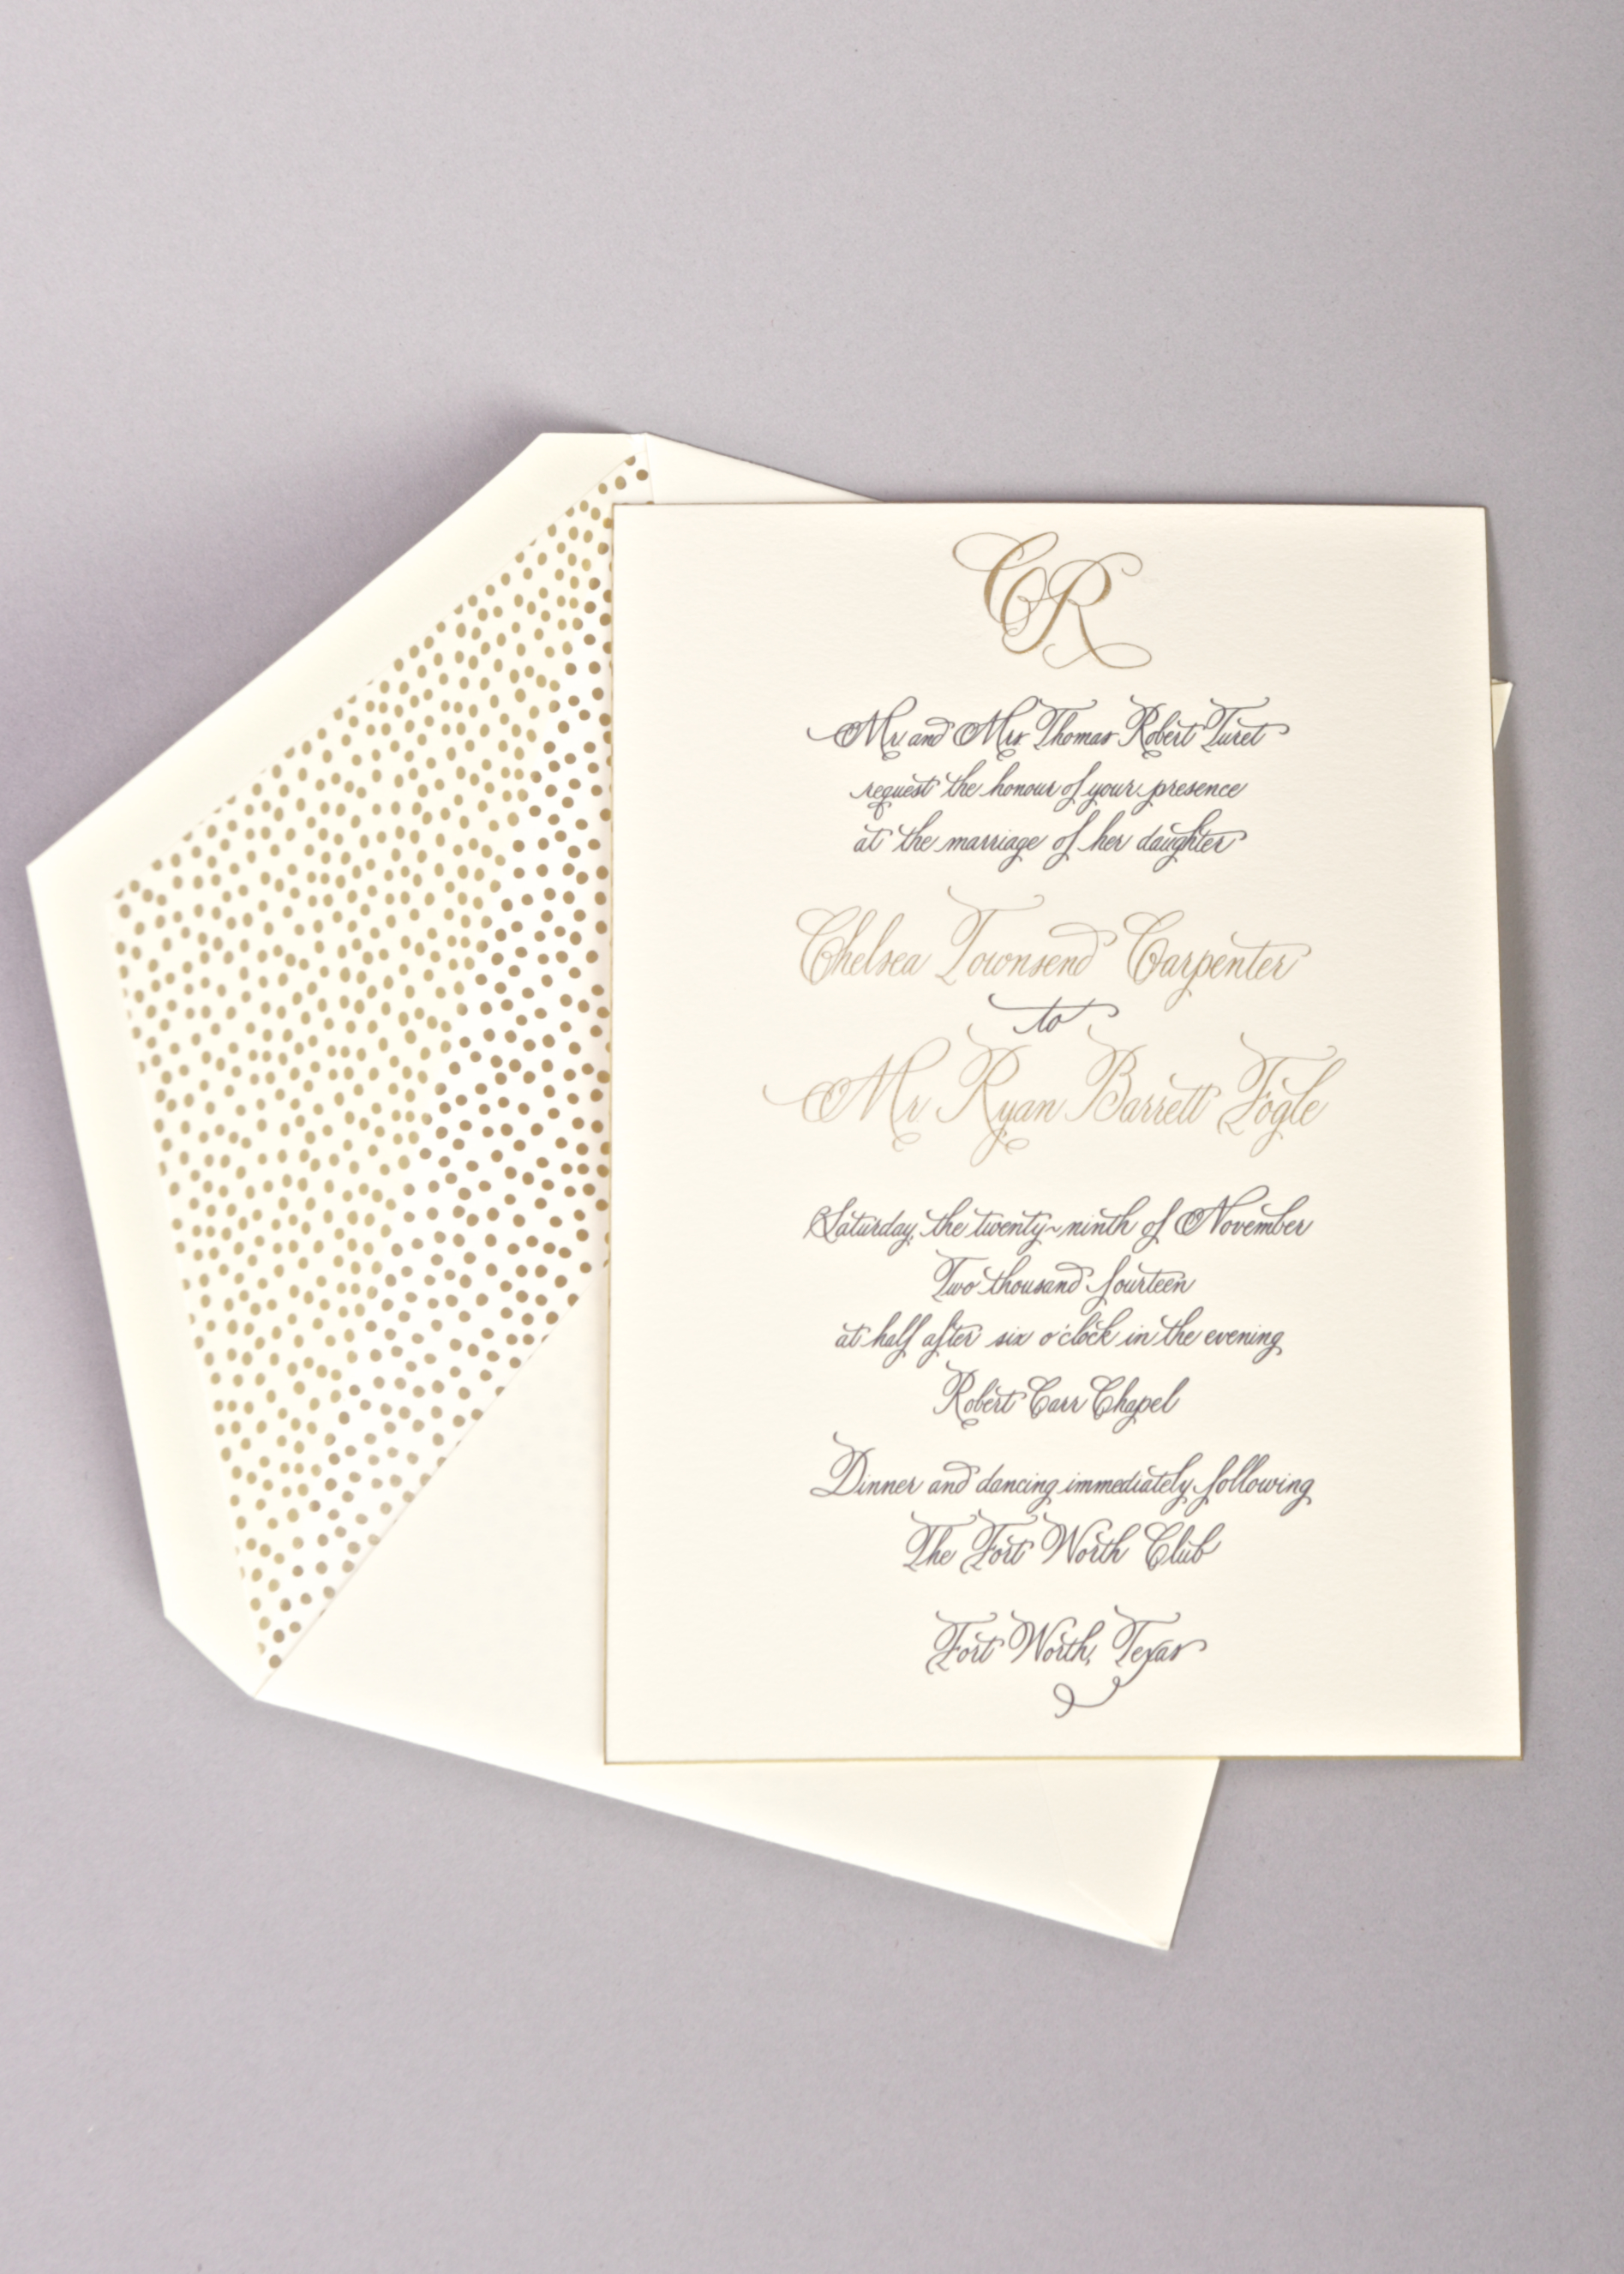 CR
Mr and Mrs Thomas Robert Turet
request the honour of your presence
at the marriage of her daughter
Chelsea Townsend Carpenter
to
Mr Ryan Barrett Fogle
Saturday, the twenty~ninth of November
Two thousand fourteen
at half after six o'clock in the evening
Robert Carr Chapel
Dinner and dancing immediately following
The Fort Worth Club
Fort Worth, Texas